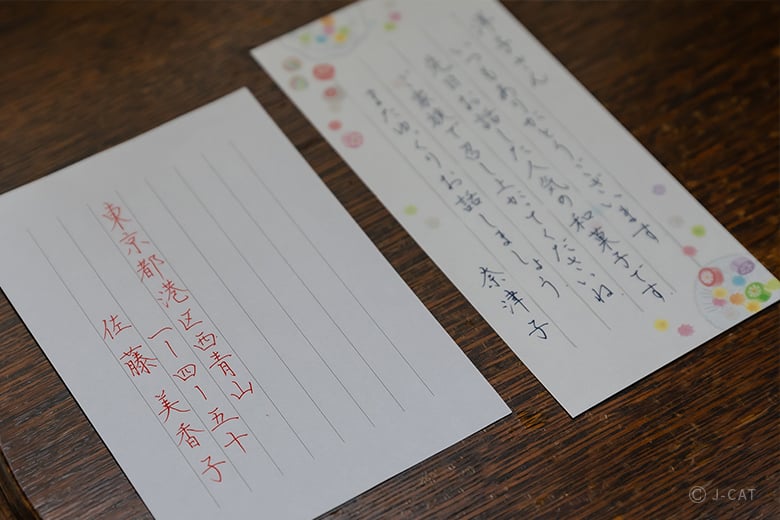 東京都港区西青山
一ー四ー五十
佐藤 美香子
洋子さん
いつもありがとうございます
先日お話した人気の和菓子です
ご家族で召し上がってくださいね
またゆっくりお話しましょう
奈津子
© J-CAT